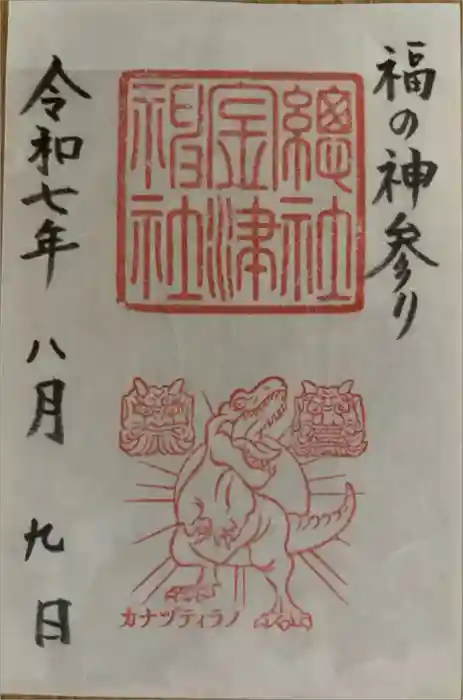 福の神参り
總社
金津
神社
カナヅティラノ
令和七年 八月 九日